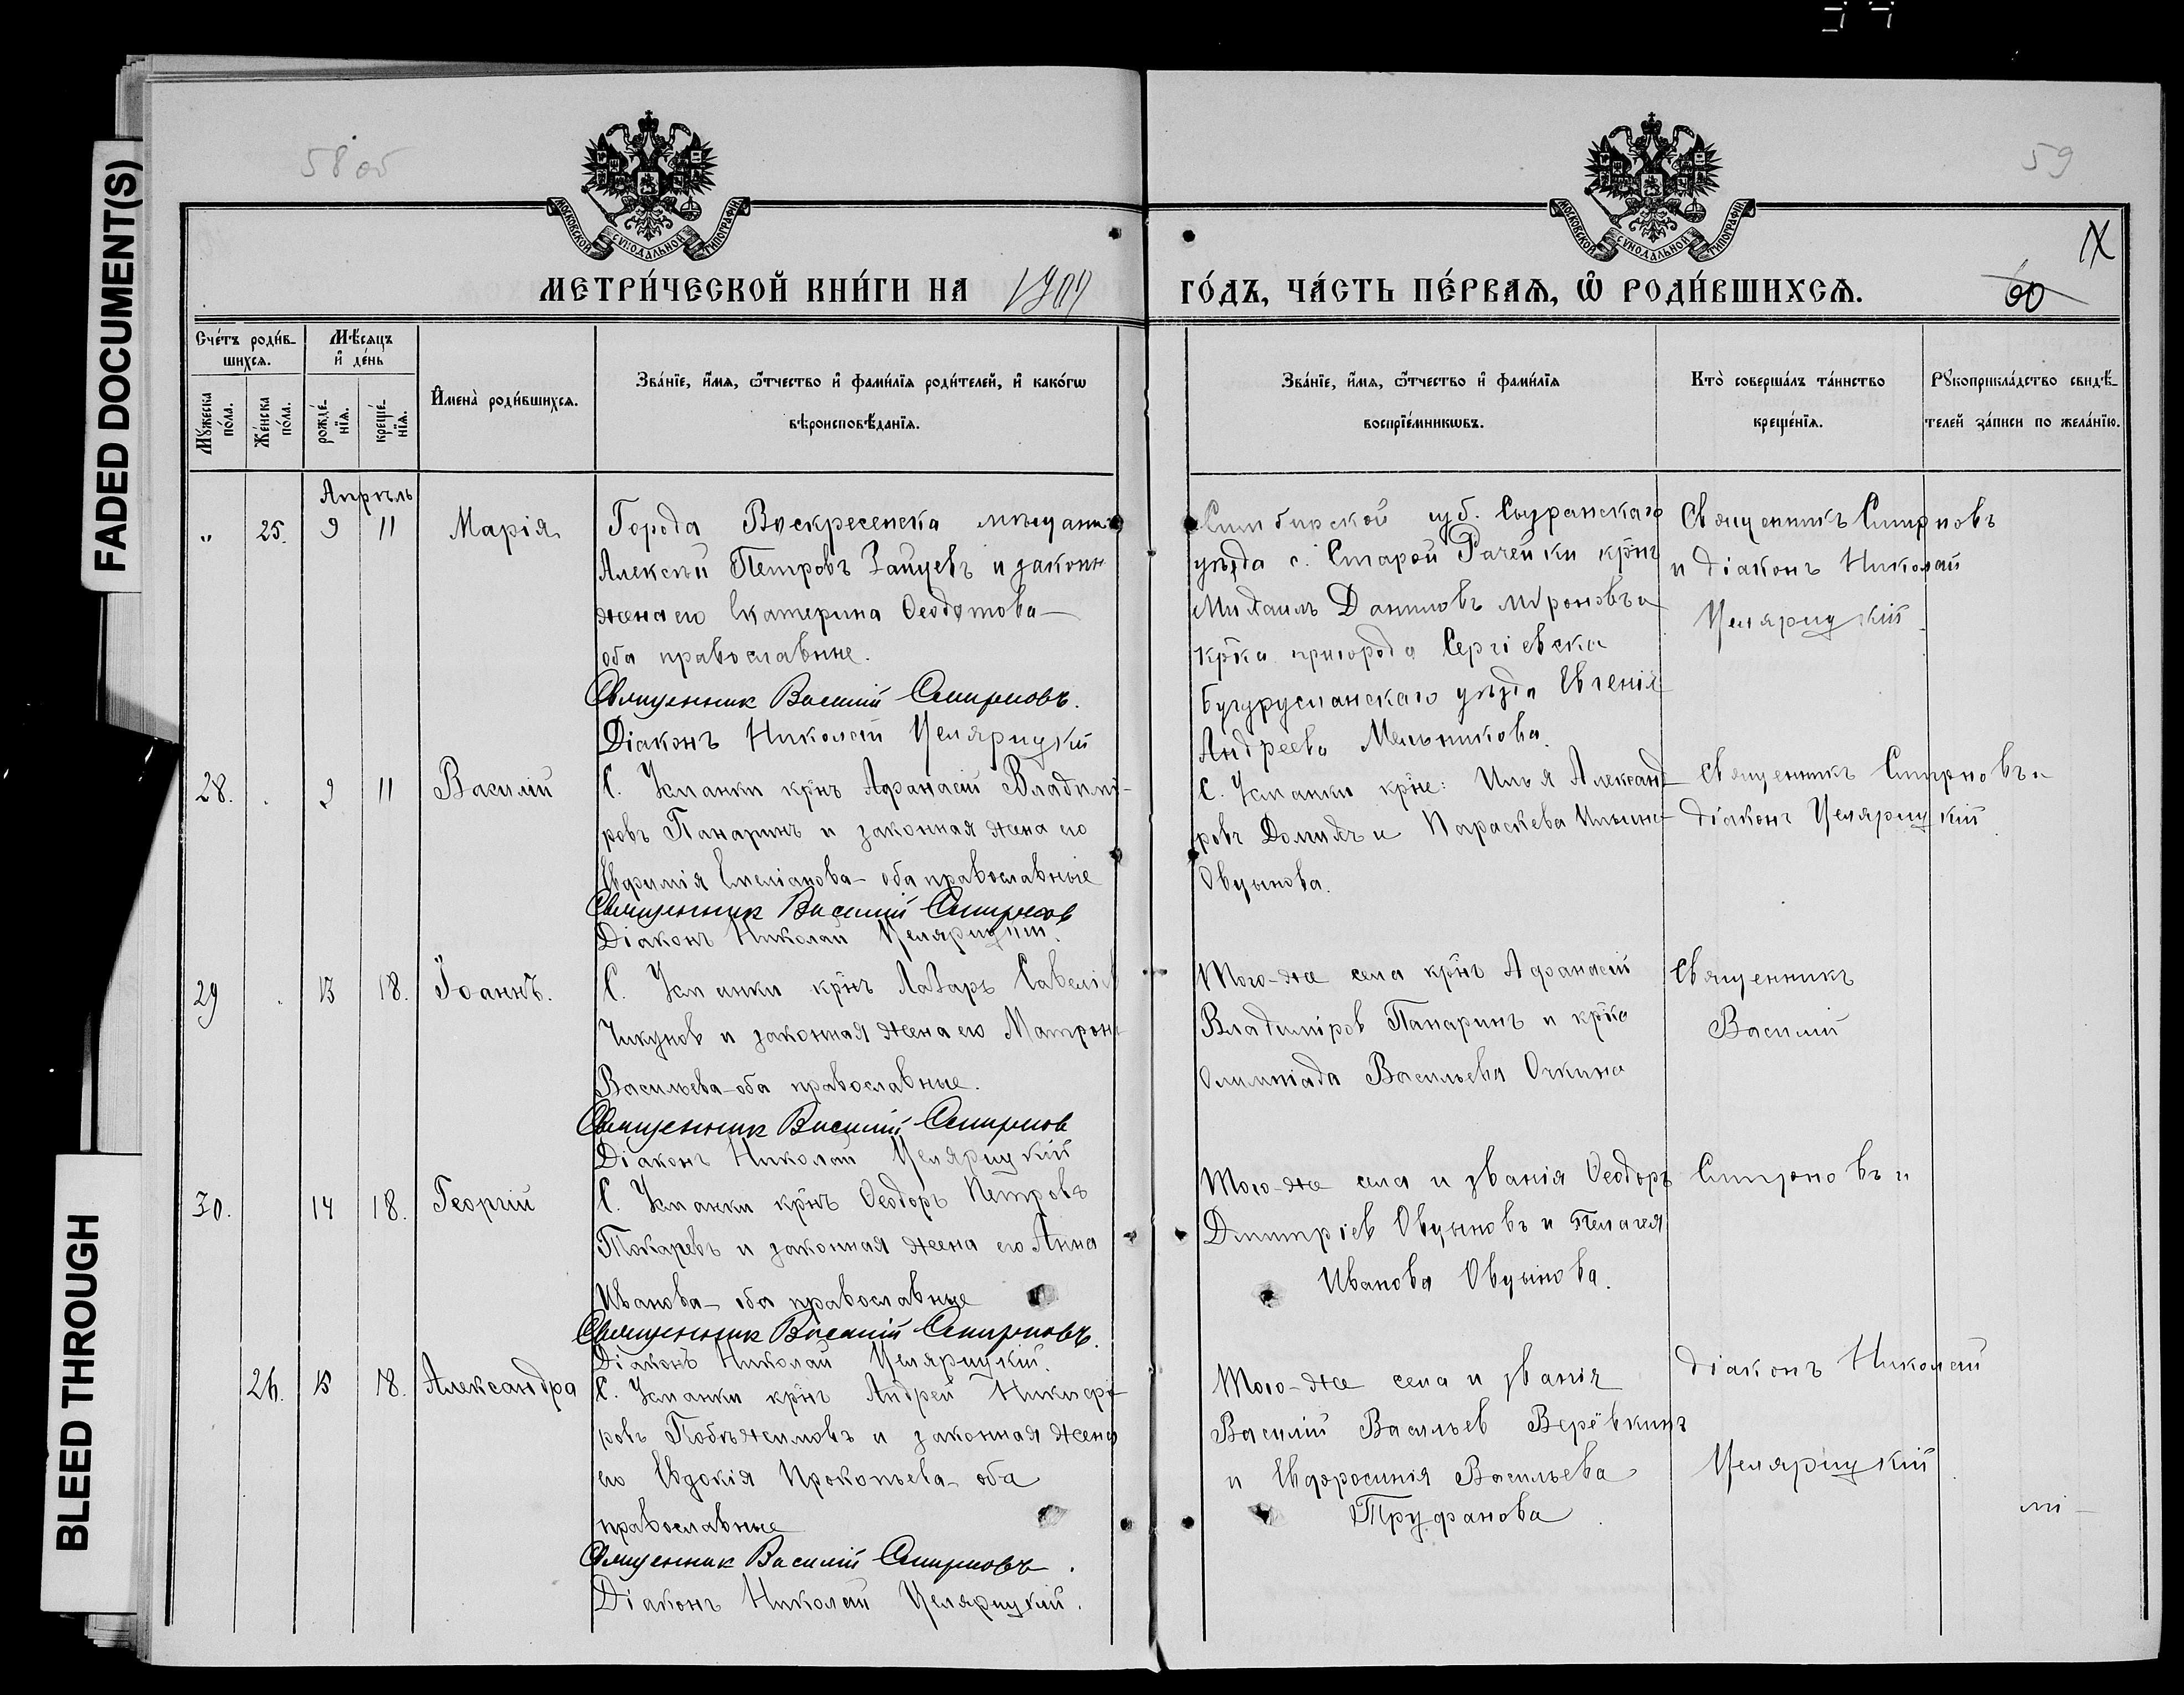 FADED DOCUMENT(S)
BLEED THROUGH
58 об
59
МОСКОВСКОЙ СѴНОДАЛЬНОЙ ТИПОГРАФІИ
МОСКОВСКОЙ СѴНОДАЛЬНОЙ ТИПОГРАФІИ
МЕТРИ́ЧЕСКОЙ КНИ́ГИ НА 1909
ГО́ДЪ, ЧА́СТЬ ПЕ́РВАѦ, Ѽ РОДИ́ВШИХСѦ.
60
Сче́тъ роди́в-
шихсѧ.
Мѣ́сѧцъ
и҆ де́нь
Мꙋ́жеска
по́ла.
Же́нска
по́ла.
рожде́-
нїѧ.
креще́-
нїѧ.
И҆мена̀ роди́вшихсѧ.
Зва́нїе, и҆́мѧ, ѻ҆́тчество и҆ фами́лїѧ роди́телей, и҆ како́гѡ
вѣроисповѣ́данїѧ.
Зва́нїе, и҆́мѧ, ѻ҆́тчество и҆ фами́лїѧ
воспрїе́мникѡвъ.
Кто̀ соверша́лъ та́инство
креще́нїѧ.
Рꙋкоприкла́дство свидѣ́-
телей за́писи по жела́нїю.
Апрѣль
„ 25. 9 11 Марія
Города Воскресенска мѣщанин
Алексѣй Петровъ Зайцевъ и законн
жена его Екатерина Ѳеодотова -
оба православные.
Священник Василій Смирновъ.
Діаконъ Николай Целярицкій
Симбирской губ. Сызранскаго
уѣзда с. Старой Рачейки крнъ
Михаилъ Даниловъ Мѵроновъ и
крка пригорода Сергіевска
Бугурусланскаго уѣзда Евгенія
Андреева Мельникова.
Священникъ Смирновъ
и діаконъ Николай
Целярицкій
28. . 9 11 Василій
С. Усманки крнъ Афанасій Владимі-
ровъ Панаринъ и законная жена его
Евфимія Емеліанова - оба православные
Священник Василій Смирнов
Діаконъ Николай Целярицкій.
С. Усманки крне: Илья Александ-
ровъ и Параскева Ильина
Овцынова.
Священникъ Смирновъ и
діаконъ Целярицкій
29 . 13 18. Іоаннъ.
С. Усманки крнъ Лазарь Савеліев
Чикунов и законная жена его Матрона
Васильева - оба православные.
Священник Василій Смирнов
Діаконъ Николай Целярицкій
Того-же села крнъ Афанасій
Владиміров Панаринъ и крка
Олимпіада Васильева Очкина
Священникъ
Василій
30. 14 18. Георгій
С. Усманки крнъ Ѳеодоръ Петровъ
Токаревъ и законная жена его Анна
Иванова - оба православные
Священник Василій Смирновъ.
Діаконъ Николай Целярицкій.
Того-же села и званія Ѳеодоръ
Дмитріев Овцыновъ и Пелагея
Иванова Овцынова.
Смирновъ и
26. 15 18. Александра
С. Усманки крнъ Андрей Никифо-
ровъ Побѣжимовъ и законная жена
его Евдокія Прокопьева - оба
православные
Священник Василій Смирновъ.
Діаконъ Николай Целярицкій.
Того-же села и званія
Василій Васильев Верёвкинъ
и Евфросинія Васильева
Труфанова
діаконъ Николай
Целярицкій